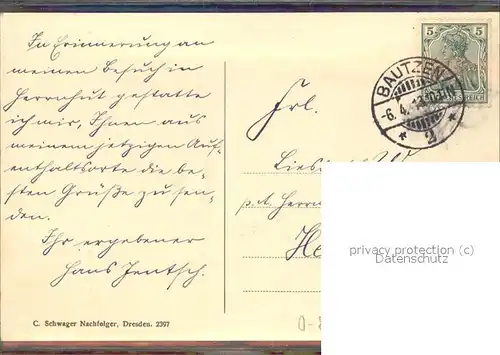 In Erinnerung an
meinen Besuch in
Herrnhut gestatte
ich mir, Ihnen aus
meinem jetzigen Auf-
enthaltsorte die be-
sten Grüße zu sen-
den.
Ihr ergebener
Hans Jentsch.
C. Schwager Nachfolger, Dresden. 2397
5 5
BAUTZEN
-6.4.
* 2 *
Frl.
p. A. Herrn
privacy protection (c)
Datenschutz